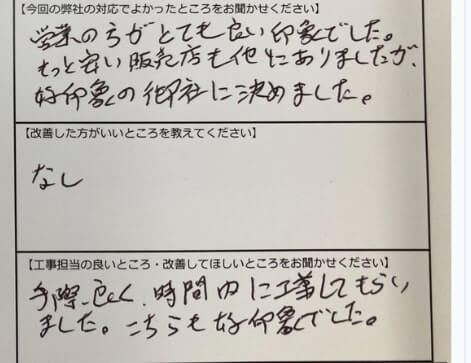 【今回の弊社の対応でよかったところをお聞かせください】
営業の方がとても良い印象でした。
もっと安い販売店も他にありましたが、
好印象の御社に決めました。
【改善した方がいいところを教えてください】
なし
【工事担当の良いところ・改善してほしいところをお聞かせください】
手際良く、時間内に工事してもらい
ました。こちらも好印象でした。